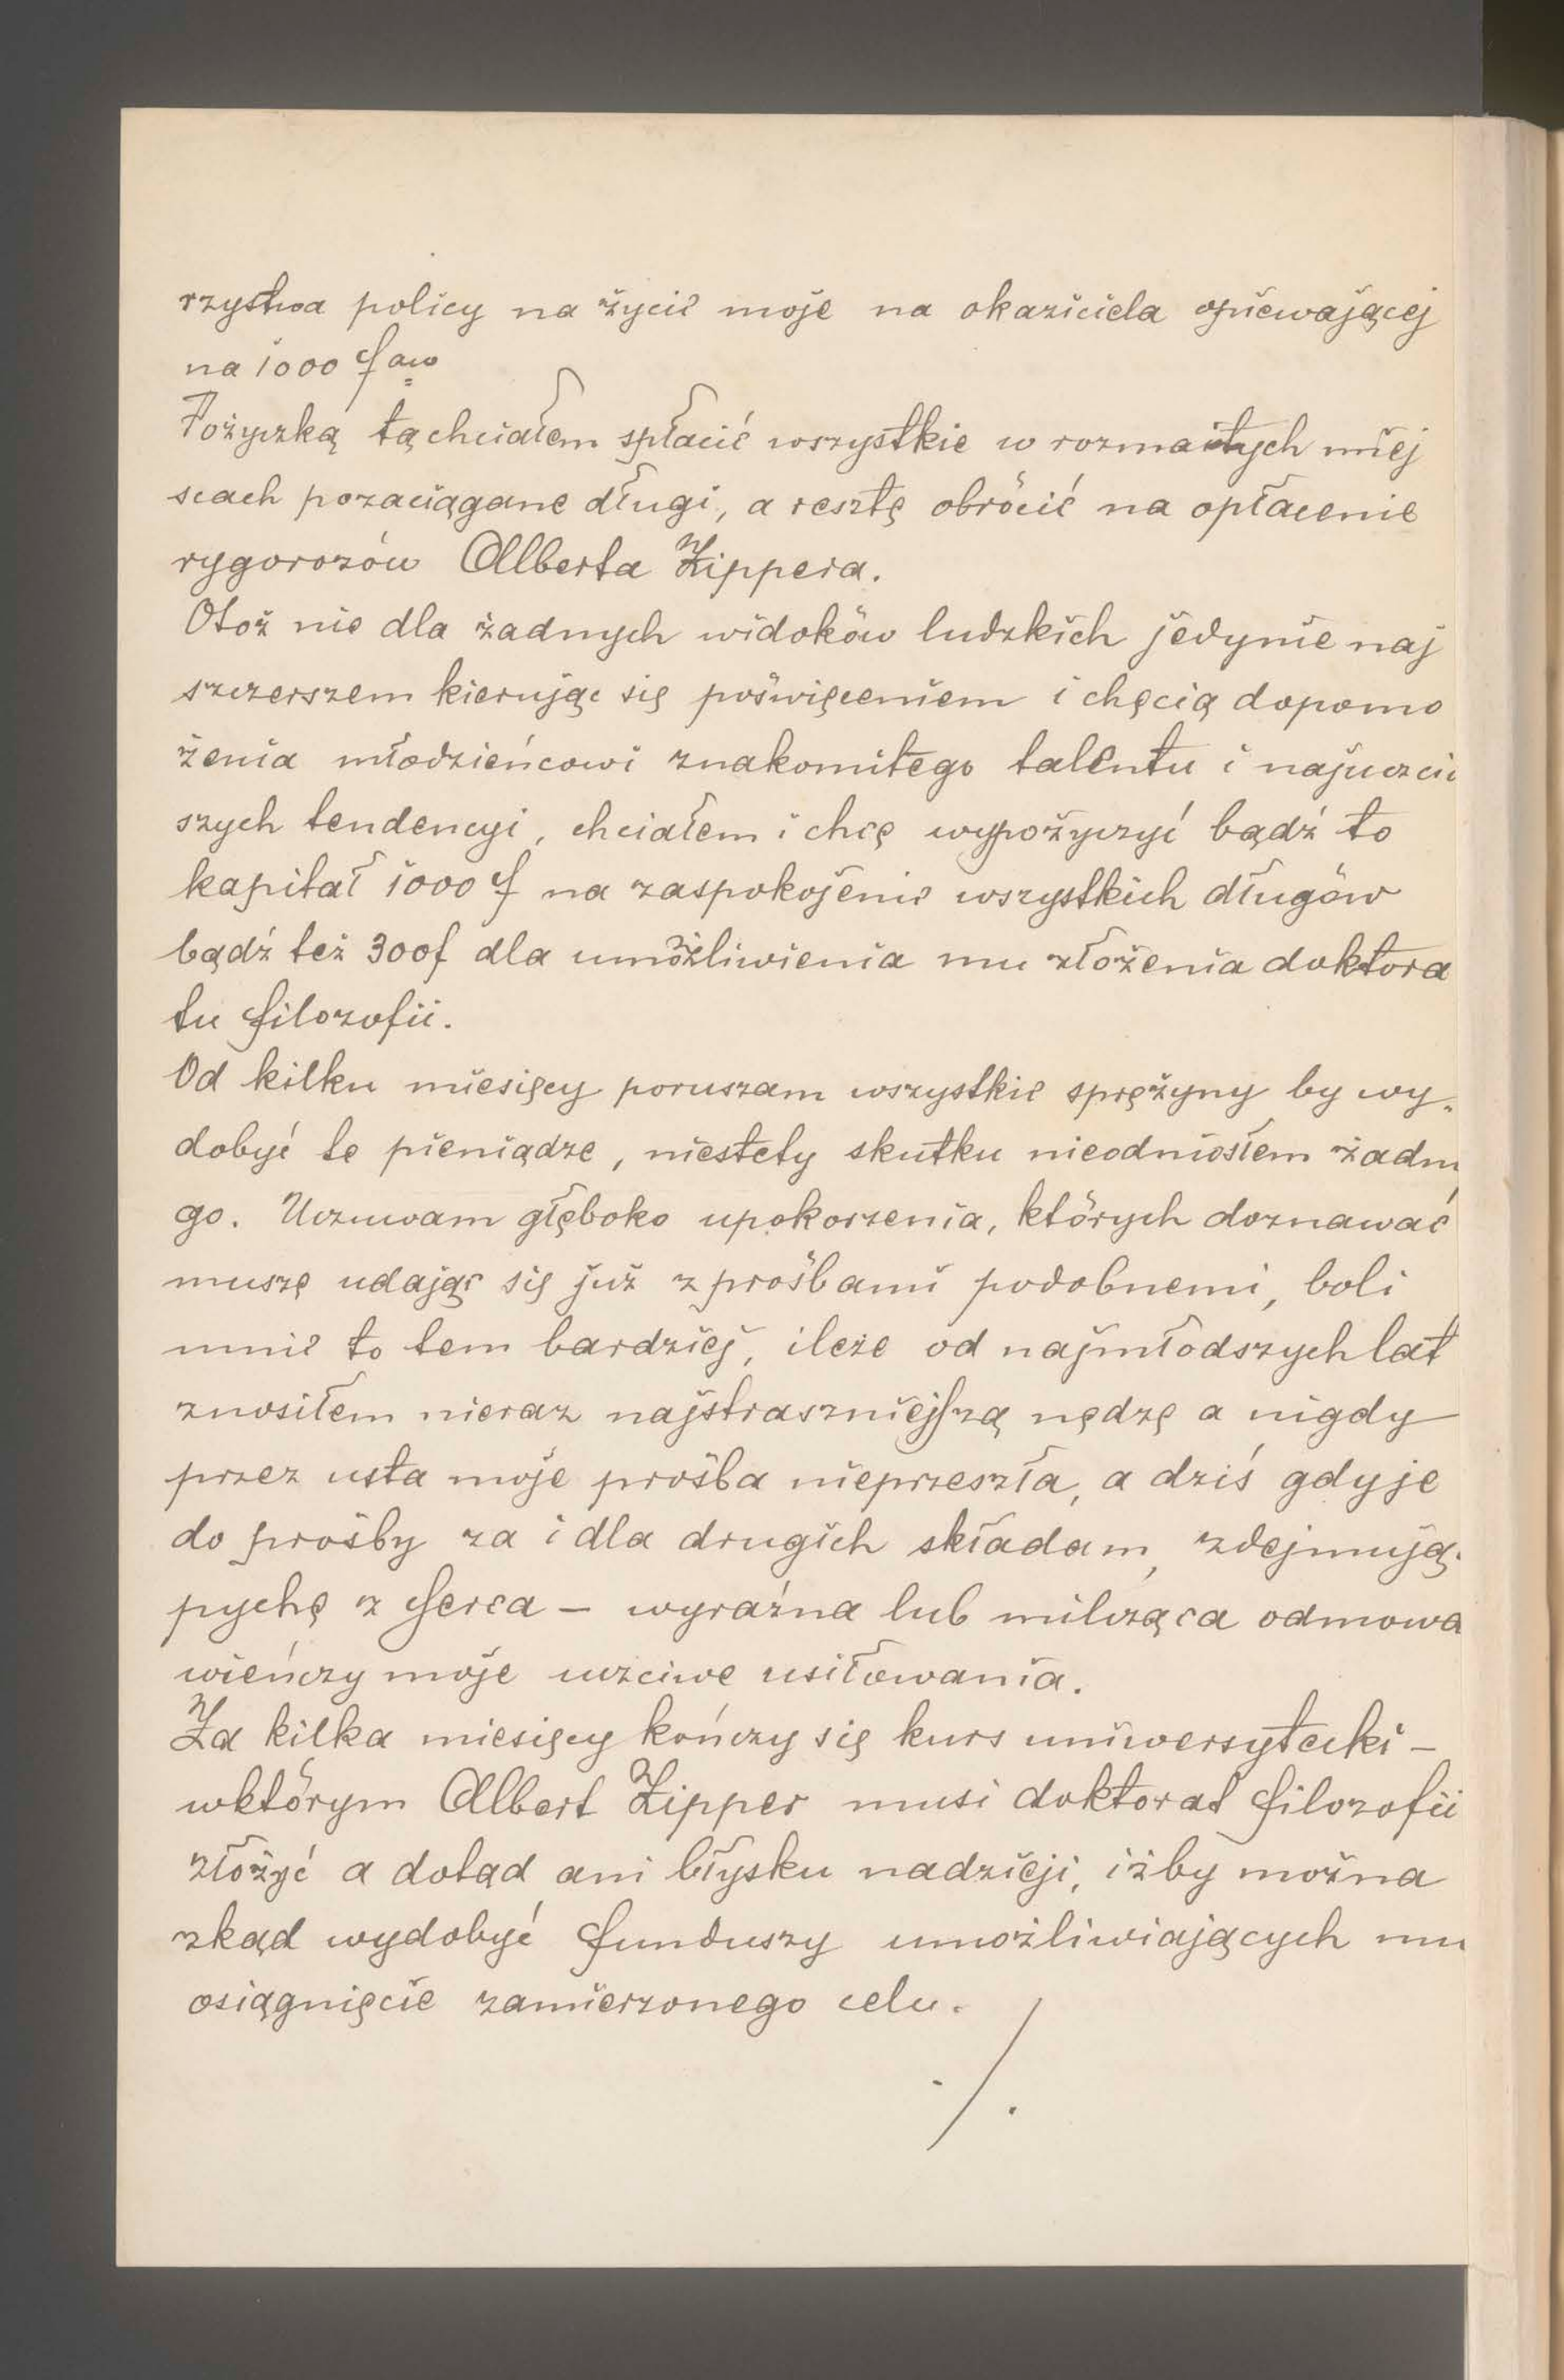 rzystwa policy na życie moje na okaziciela opiewającej
na 1000 f aw
Pożyczką tą chciałem spłacić wszystkie w rozmaitych miej
scach pozaciągane długi, a resztę obrócić na opłacenie
rygorozów Alberta Zippera.
Otoż nie dla żadnych widoków ludzkich jedynie naj
szczerszem kierując się poświęceniem i chęcią dopomo
żenia młodzieńcowi znakomitego talentu i najuczciw
szych tendencyi, chciałem i chcę wypożyczyć bądź to
kapitał 1000 f na zaspokojenie wszystkich długów
bądź też 300f dla umożliwienia mu złożenia doktora
tu filozofii.
Od kilku miesięcy poruszam wszystkie sprężyny by wy„
dobyć te pieniądze, niestety skutku nieodniosłem żadne
go. Uczuwam głęboko upokorzenia, których doznawać
muszę udając się już z prośbami podobnemi, boli
mnie to tem bardziej, ileże od najmłodszych lat
znosiłem nieraz najstraszniejszą nędzę a nigdy
przez usta moje prośba nieprzeszła, a dziś gdy je
do prośby za i dla drugich składam, zdejmując
pychę z serca – wyraźna lub milcząca odmowa
wieńczy moje uczciwe usiłowania.
Za kilka miesięcy kończy się kurs uniwersytecki –
w którym Albert Zipper musi doktorat filozofii
złożyć a dotąd ani błysku nadzieji, iżby można
zkąd wydobyć funduszy umożliwiających mu
osiągnięcie zamierzonego celu.
./.